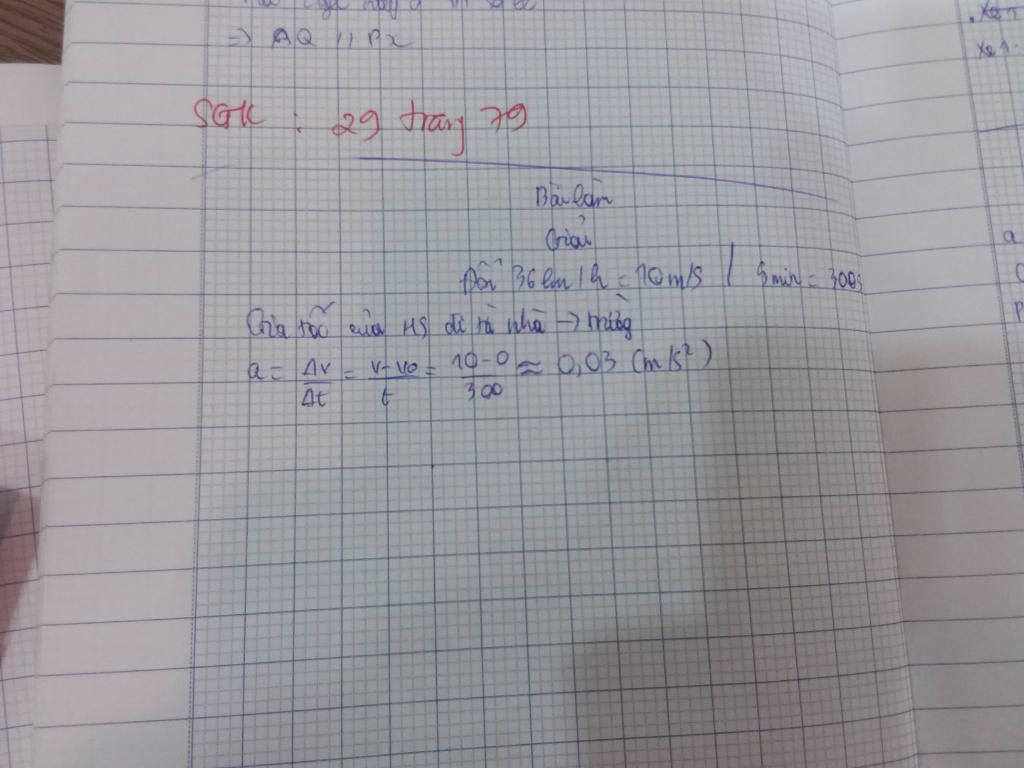 ⇒ AQ // Px
SGK : 29 trang 79
Bài làm
Giải
Đổi 36 km/h = 10 m/s / 5 min = 300s
Gia tốc của HS đi từ nhà → trường
a = Δv/Δt = v-v0/t = 10-0/300 ≈ 0,03 (m/s²)